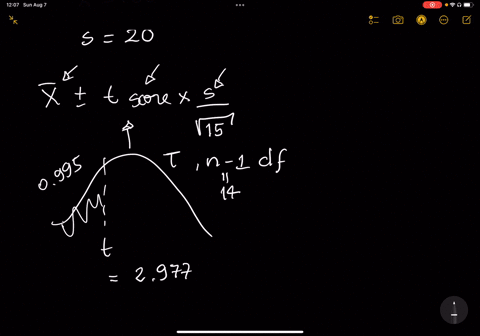 12:07 Sun Aug 7
s = 20
X̄ ± t score × s
√15
0.995
T , n-1 df
=
14
t
= 2.977